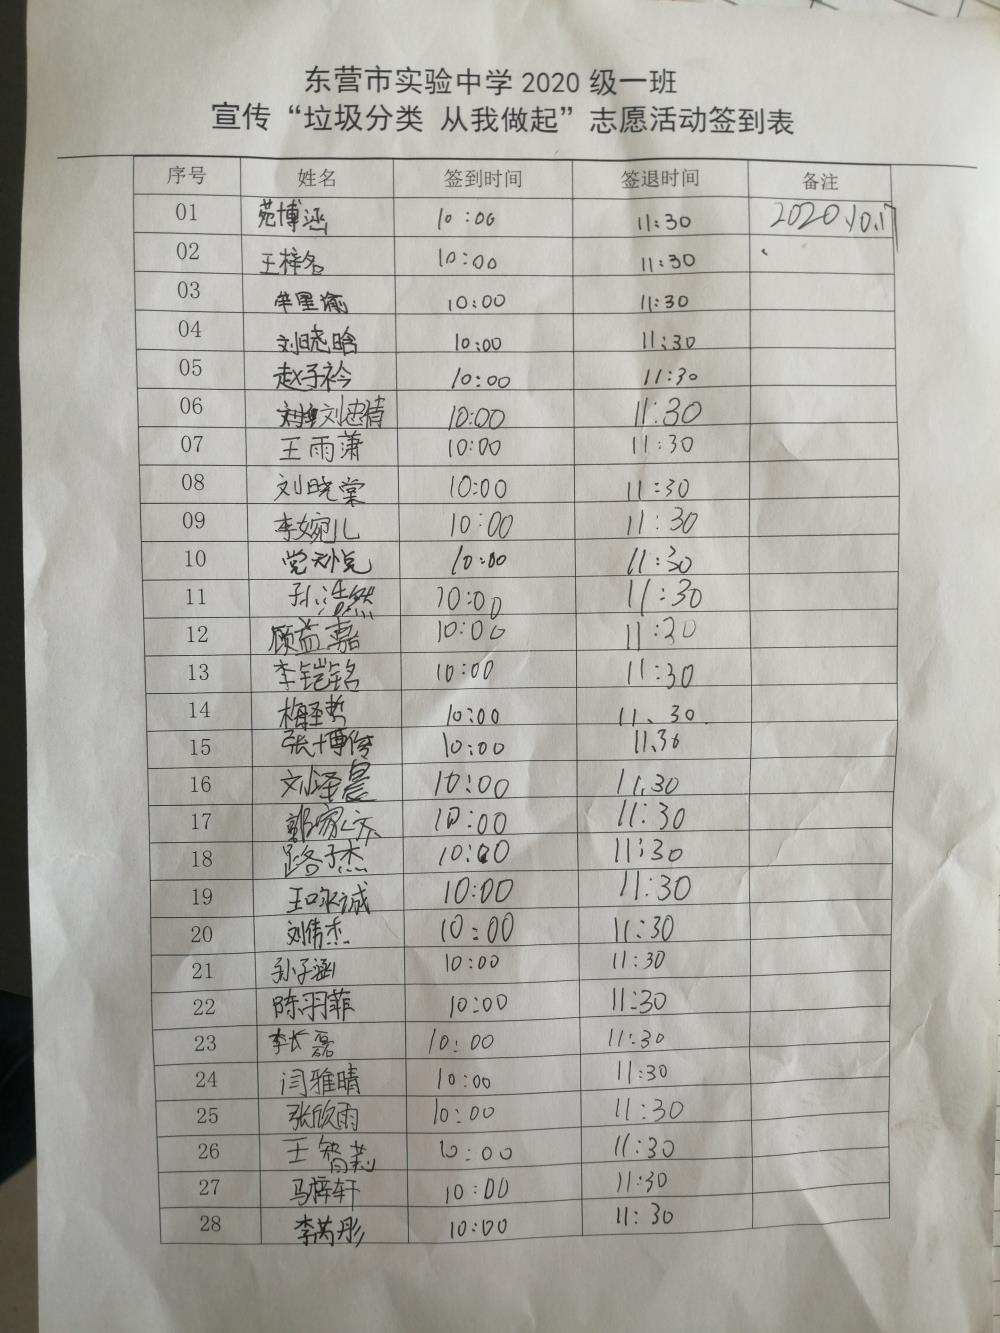 东营市实验中学 2020 级一班
宣传“垃圾分类 从我做起”志愿活动签到表
序号 姓名 签到时间 签退时间 备注
01 苑博涵 10:00 11:30 2020.10.17
02 王梓名 10:00 11:30
03 牟星渝 10:00 11:30
04 刘晓晗 10:00 11:30
05 赵子衿 10:00 11:30
06 刘忠倩 10:00 11:30
07 王雨萧 10:00 11:30
08 刘晓棠 10:00 11:30
09 李婉儿 10:00 11:30
10 党 悦 10:00 11:30
11 孙浩然 10:00 11:30
12 顾益嘉 10:00 11:30
13 李铠铭 10:00 11:30
14 梅圣哲 10:00 11.30
15 张博俊 10:00 11.30
16 刘泽晨 10:00 11.30
17 郭家 10:00 11:30
18 路子杰 10:00 11:30
19 王咏诚 10:00 11:30
20 刘倩杰 10:00 11:30
21 孙子涵 10:00 11:30
22 陈羽菲 10:00 11:30
23 李长磊 10:00 11:30
24 闫雅晴 10:00 11:30
25 张欣雨 10:00 11:30
26 王智莉 10:00 11:30
27 马梓轩 10:00 11:30
28 李芮彤 10:00 11:30